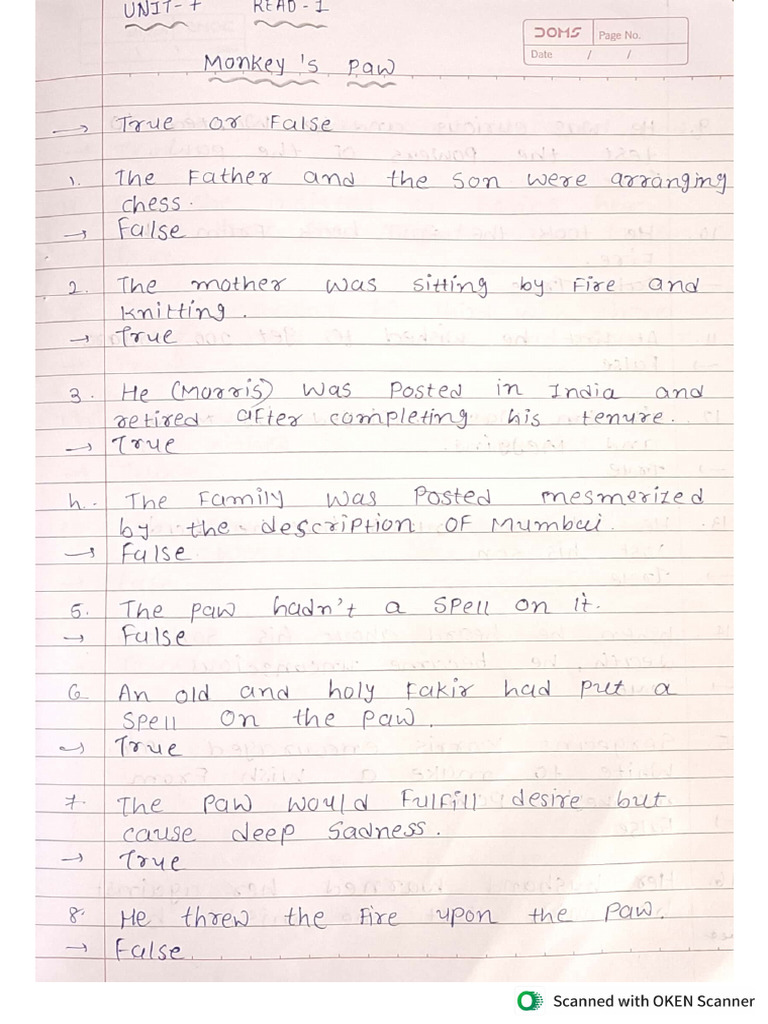 UNIT-7 READ-1
DOMS Page No.
Date / /
Monkey's Paw
→ True or False
1. The Father and the son were arranging
chess.
→ False
2. The mother was sitting by Fire and
knitting.
→ True
3. He (Morris) was Posted in India and
retired after completing his tenure.
→ True
4. The Family was Posted mesmerized
by the description OF Mumbai.
→ False
5. The paw hadn't a spell on it.
→ False
6 An old and holy Fakir had put a
spell on the paw.
→ True
7. The Paw would Fulfill desire but
cause deep sadness.
→ True
8. He threw the Fire upon the Paw.
→ False
Scanned with OKEN Scanner